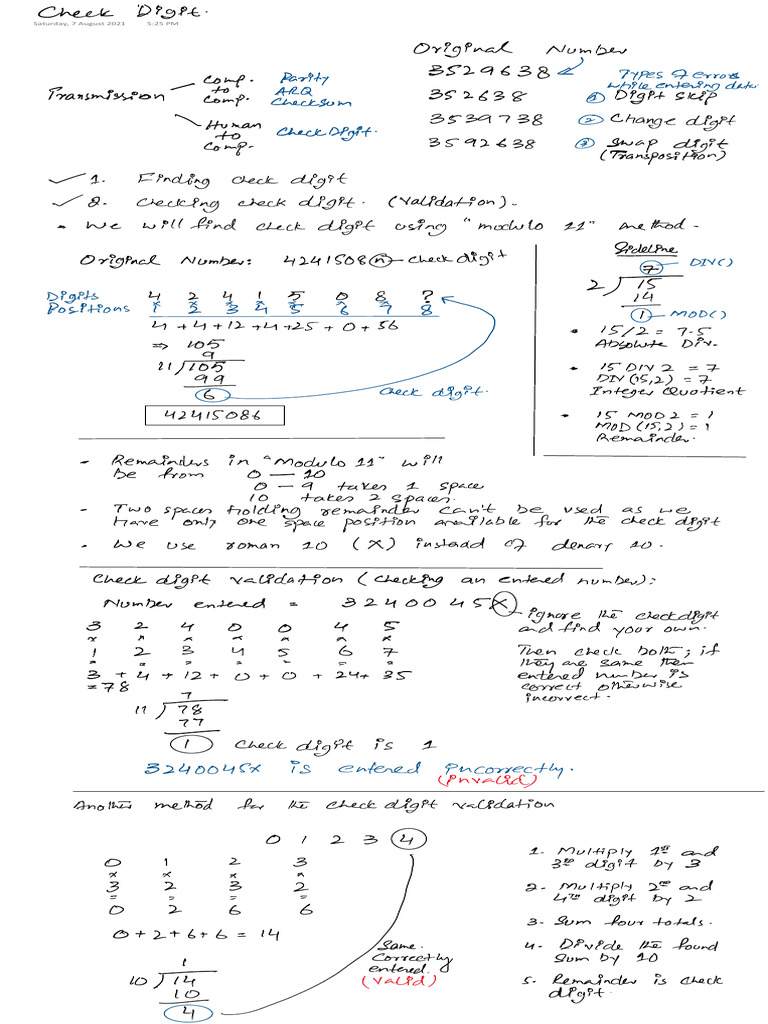 Check Digit.
Saturday, 7 August 2021 5:25 PM
Original Number
Transmission
Comp. to Comp. Parity ARQ Checksum
Human to Comp. Check Digit.
3529638
Types of errors while entering data
352638 ① Digit skip
3539738 ② Change digit
3592638 ③ Swap digit (Transposition)
1. Finding check digit
2. Checking check digit. (Validation).
• We will find check digit using "modulo 11" method.
Original Number: 4241508(n) - check digit
Digits 4 2 4 1 5 0 8 ?
Positions 1 2 3 4 5 6 7 8
4 + 4 + 12 + 4 + 25 + 0 + 56
⇒ 105
9
11 105
99
6
Check digit.
42415086
Sideline
7 DIV()
2 15
14
1 MOD()
• 15/2 = 7.5
Absolute Div.
• 15 DIV 2 = 7
DIV(15,2) = 7
Integer Quotient
• 15 MOD 2 = 1
MOD(15,2) = 1
Remainder.
- Remainders in "Modulo 11" will
be from 0 — 10
0 - 9 takes 1 space
10 takes 2 spaces.
- Two spaces holding remainder can't be used as we
have only one space position available for the check digit
- We use roman 10 (X) instadd of denary 10.
Check digit validation (checking an entered number):
Number entered = 3240045X
- ignore the check digit
and find your own.
Then check both; if
they are same then
entered number is
correct otherwise
incorrect.
3 2 4 0 0 4 5
× × × × × × ×
1 2 3 4 5 6 7
= = = = = = =
3 + 4 + 12 + 0 + 0 + 24 + 35
= 78
7
11 78
77
1 check digit is 1
3240045X is entered incorrectly.
(invalid)
Another method for the check digit validation
0 1 2 3 4
0 1 2 3
× × × ×
3 2 3 2
= = = =
0 2 6 6
0 + 2 + 6 + 6 = 14
1
10 14
10
4
Same.
Correctly
entered.
(Valid)
1. Multiply 1st and
3rd digit by 3
2. Multiply 2nd and
4th digit by 2
3. Sum four totals.
4. Divide the found
sum by 10
5. Remainder is check
digit.